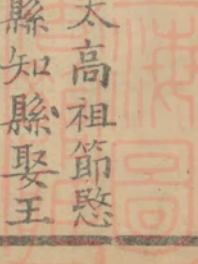 太高祖節愍
縣知縣娶王